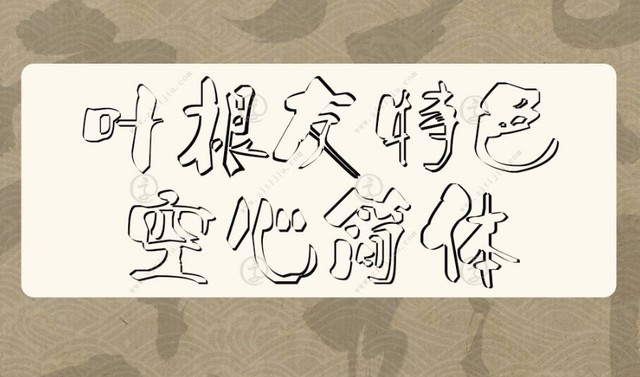 叶根友特色
空心简体